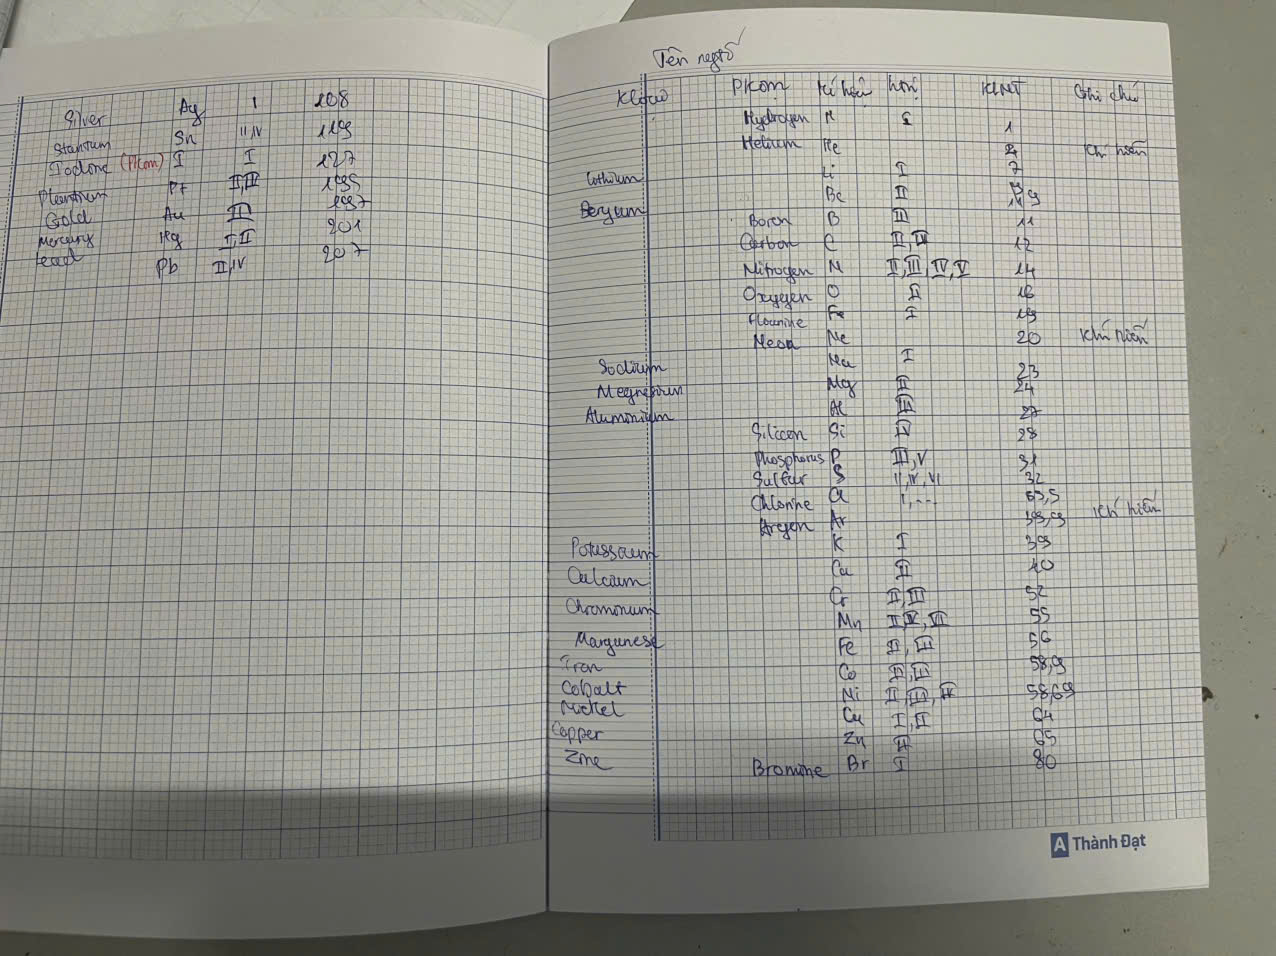 Silver Ag I 108
Stantum Sn II,IV 119
Iodine (Pkom) I I 127
Plantinum Pt II,III 195
Gold Au III 197
Mercury Hg I,II 201
Lead Pb II,IV 207
Tên ngtố
Kloại Pkom Kí hiệu htrị KLNT Ghi chú
Hydrogen H I 1
Helium He 4 Khí hiếm
Lithium Li I 7
Beryum Be II 9
Boron B III 11
Carbon C II,IV 12
Nitrogen N II,III,IV,V 14
Oxygen O II 16
Flourine I 19
Neon Ne 20 Khí hiếm
Sodium Na I 23
Megnesium Mg II 24
Aluminium Al III 27
Silicon Si IV 28
Phosphorus P III,V 31
Sulfur S II,IV,VI 32
Chlorine Cl I,... 35,5
Argon Ar 39,9 Khí hiếm
Potassium K I 39
Calcium Ca II 40
Chromonium Cr II,III 52
Manganese Mn II,IV,VII 55
Iron Fe II,III 56
Cobalt Co II,III 58,9
Nickel Ni II,III,IV 58,69
Copper Cu I,II 64
Zinc Zn II 65
Bromine Br I 80
A Thành Đạt